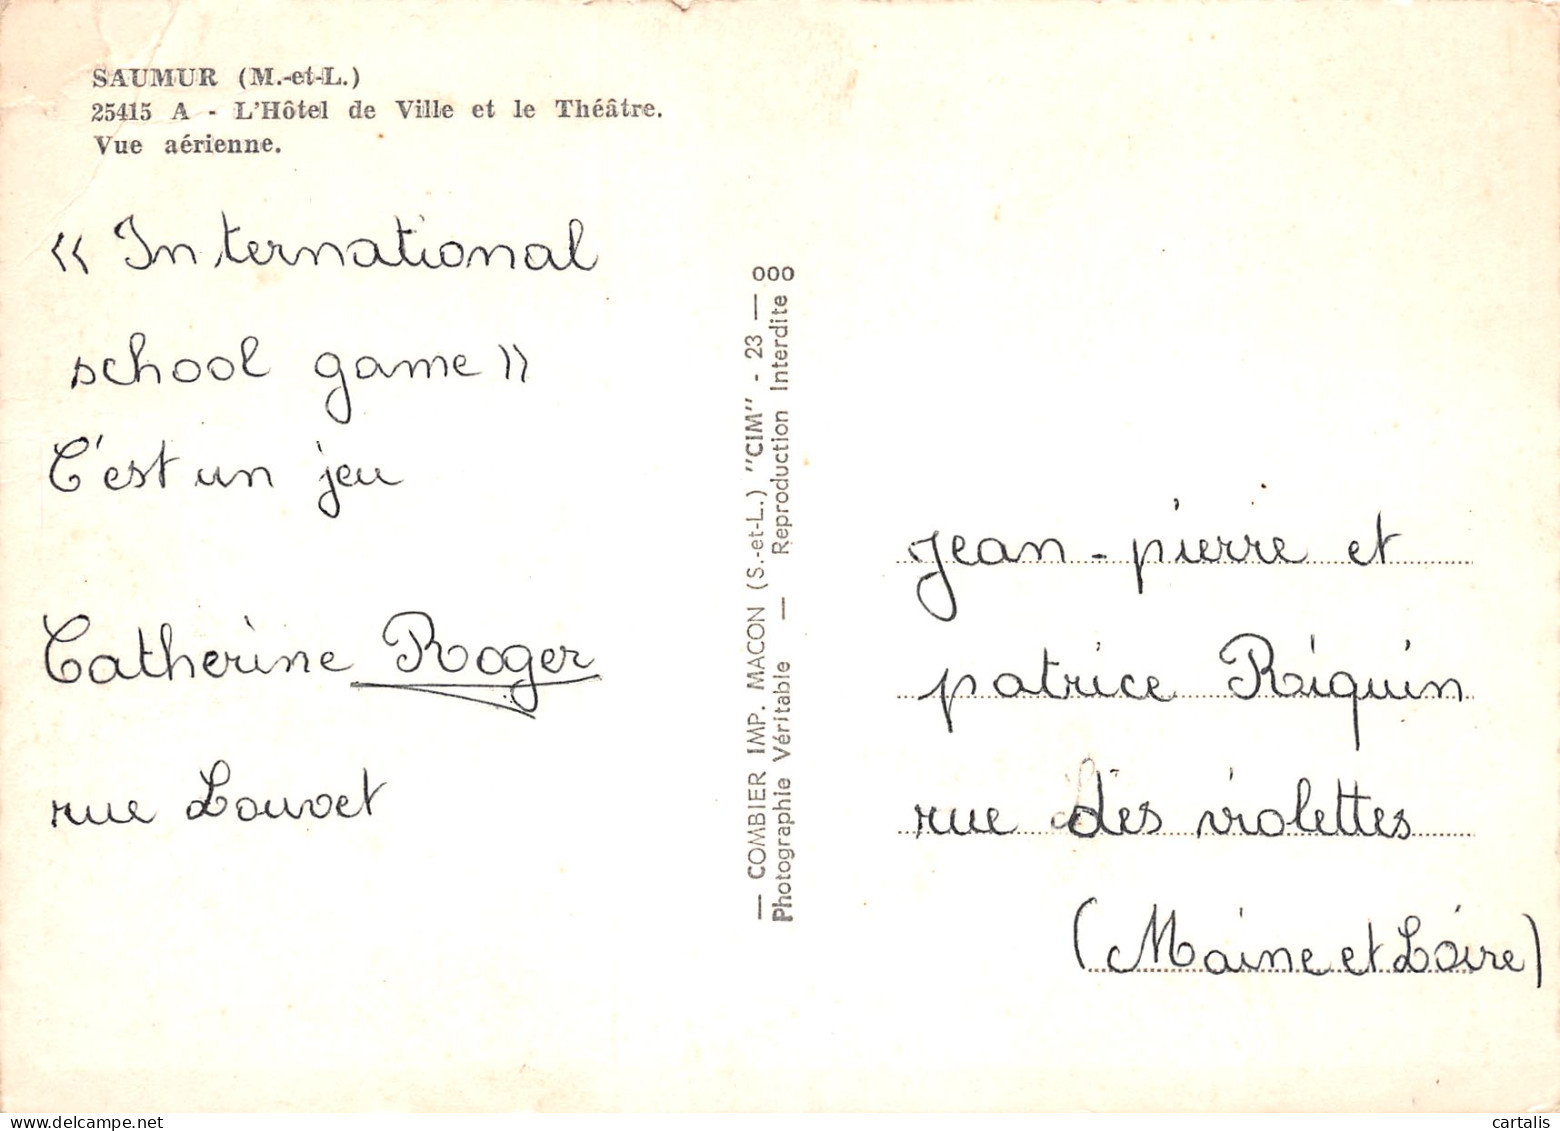 SAUMUR (M.-et-L.)
25415 A - L'Hôtel de Ville et le Théâtre.
Vue aérienne.
« International
school game »
C'est un jeu
Catherine Roger
rue Louvet
— COMBIER IMP. MACON (S.-et-L.) "CIM" - 23 — 000
Photographie Véritable — Reproduction Interdite 8
jean-pierre et
patrice Riquin
rue des violettes
(Maine et Loire)
cartalis